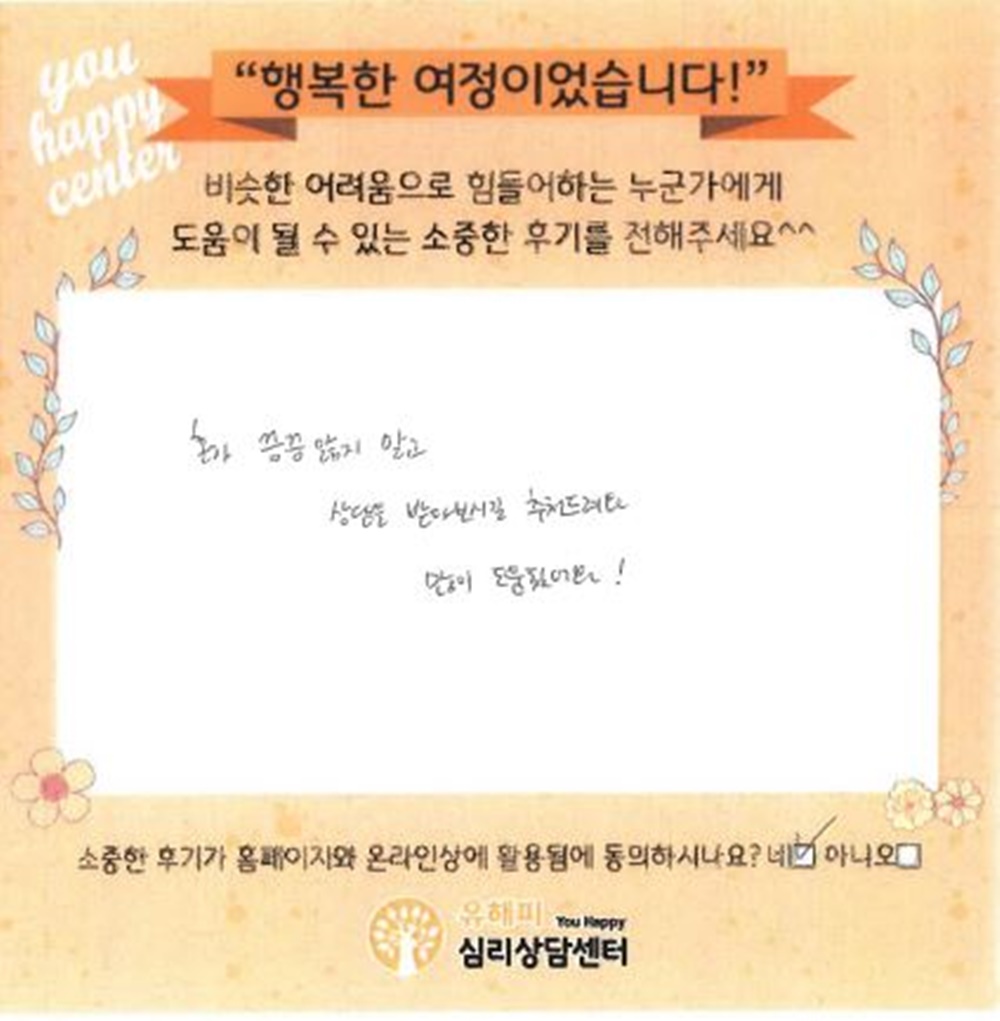 you
happy
center
“행복한 여정이었습니다!”
비슷한 어려움으로 힘들어하는 누군가에게
도움이 될 수 있는 소중한 후기를 전해주세요^^
혼자 끙끙 앓지 말고
상담을 받아보시길 추천드려요
많이 도움됐어요!
소중한 후기가 홈페이지와 온라인상에 활용됨에 동의하시나요? 네☑ 아니오☐
유해피 You Happy
심리상담센터